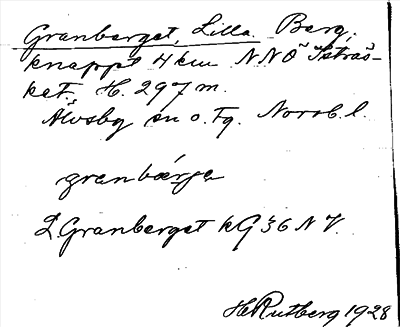 Granberget, Lilla. Berg,
knappt 4 km NNÖ Istras-
ket. H. 297 m.
Älvsby sn o. Fg. Norrb. l.
granbærje
L. Granberget kG 36 NV.
H. Rutberg 1928